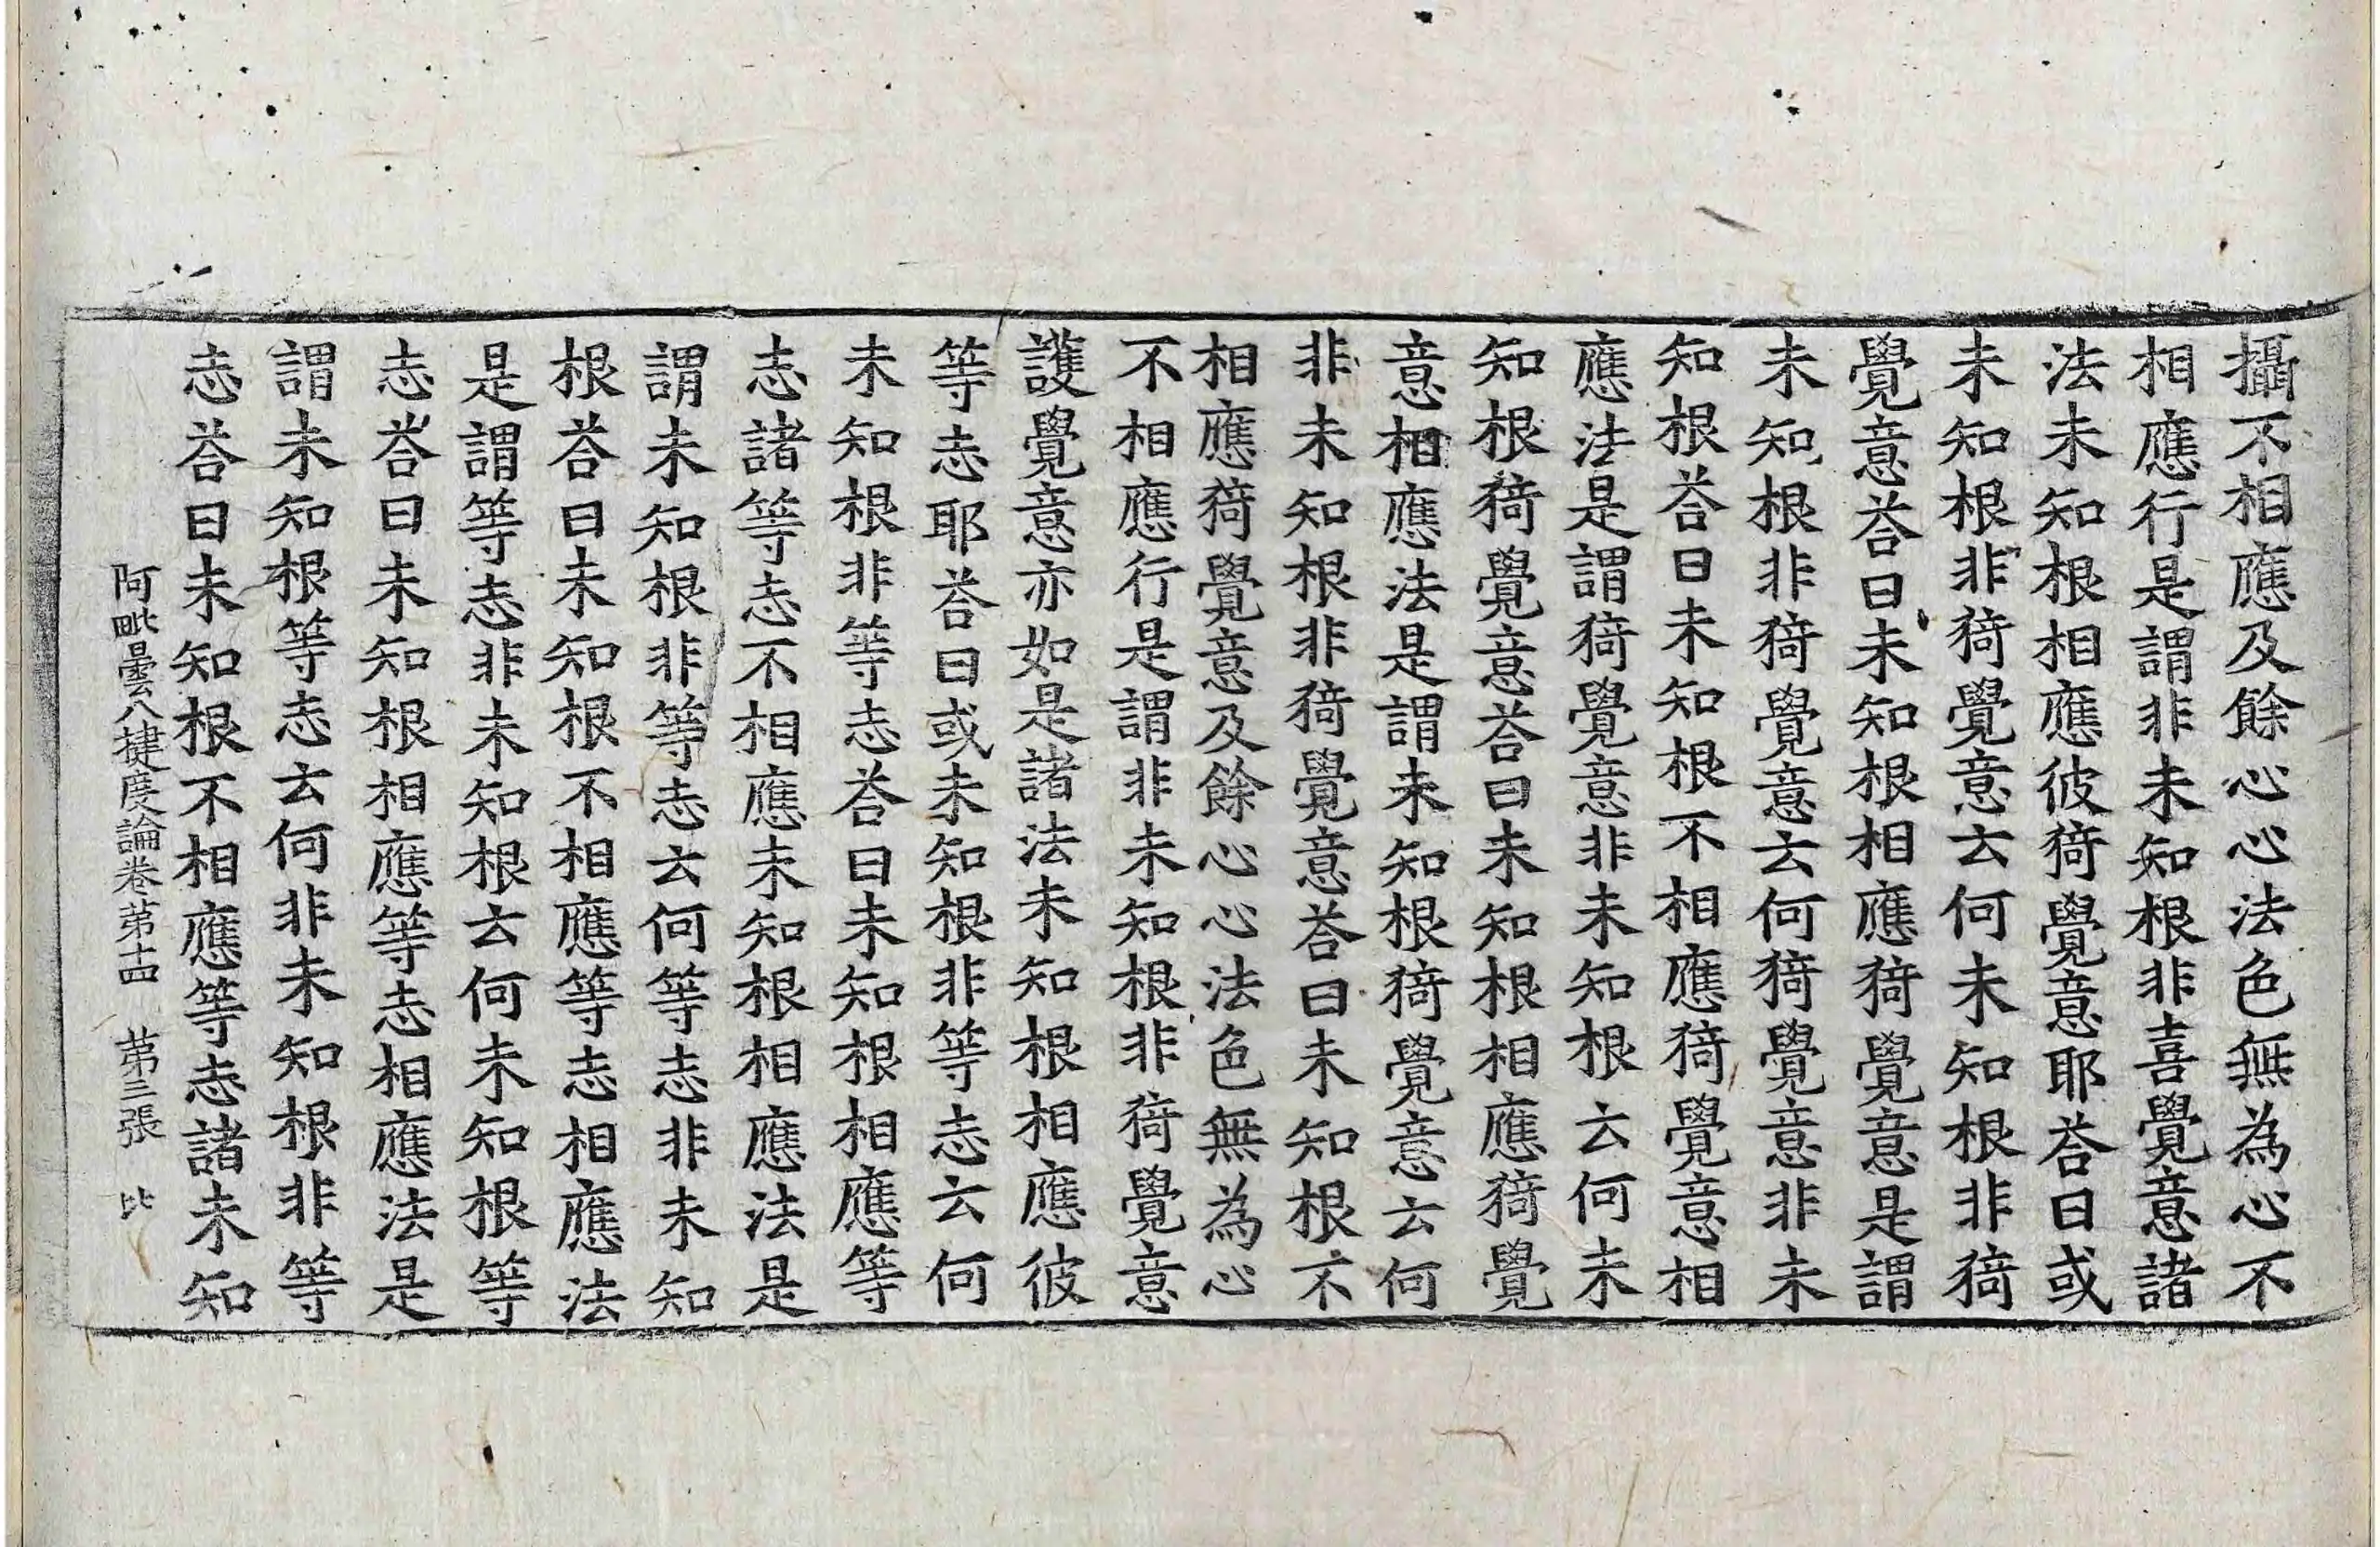 攝不相應及餘心心法色無為心不
相應行是謂非未知根非喜覺意諸
法未知根相應彼猗覺意耶荅曰或
未知根非猗覺意云何未知根非猗
覺意荅曰未知根相應猗覺意是謂
未知根非猗覺意云何猗覺意非未
知根荅曰未知根不相應猗覺意相
應法是謂猗覺意非未知根云何未
知根猗覺意荅曰未知根相應猗覺
意相應法是謂未知根猗覺意云何
非未知根非猗覺意荅曰未知根不
相應猗覺意及餘心心法色無為心
不相應行是謂非未知根非猗覺意
護覺意亦如是諸法未知根相應彼
等志耶荅曰或未知根非等志云何
未知根非等志荅曰未知根相應等
志諸等志不相應未知根相應法是
謂未知根非等志云何等志非未知
根荅曰未知根不相應等志相應法
是謂等志非未知根云何未知根等
志荅曰未知根相應等志相應法是
謂未知根等志云何非未知根非等
志荅曰未知根不相應等志諸未知
阿毗曇八揵度論卷第十四 第三張 比